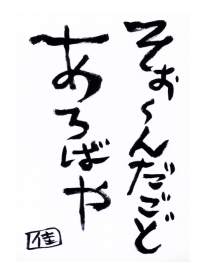 そお〜んだごど
あろばや
佳